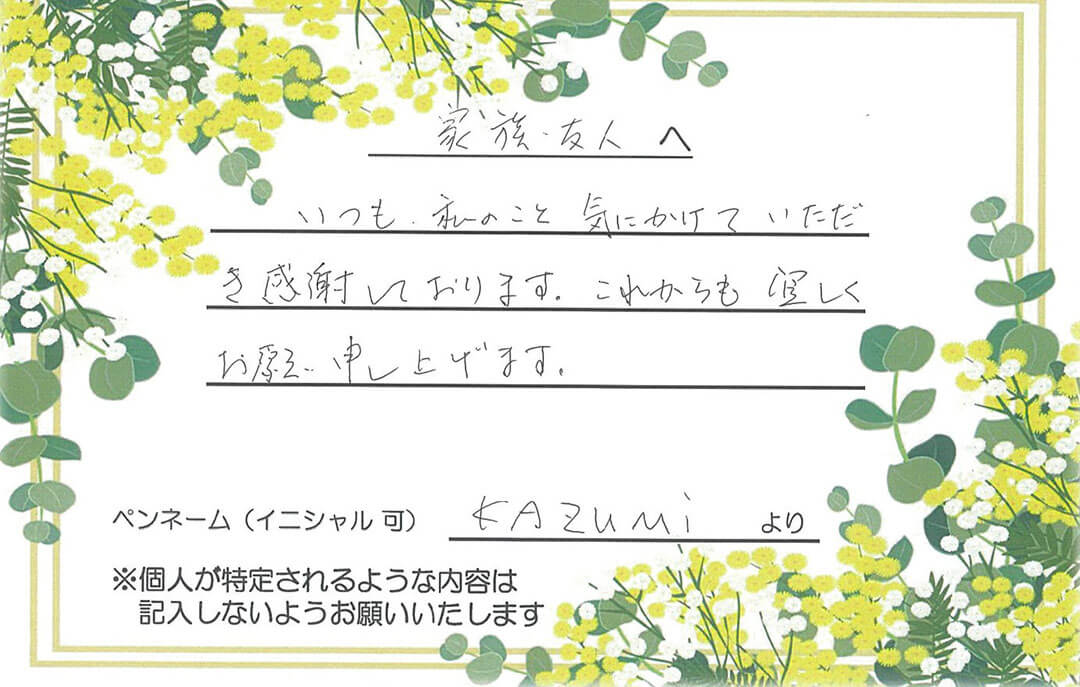 家族・友人 へ
いつも、私のこと 気にかけて いただ
き感謝しております。これからも 宜しく
お願い申し上げます。
ペンネーム（イニシャル 可） KAZUMi より
※個人が特定されるような内容は
記入しないようお願いいたします